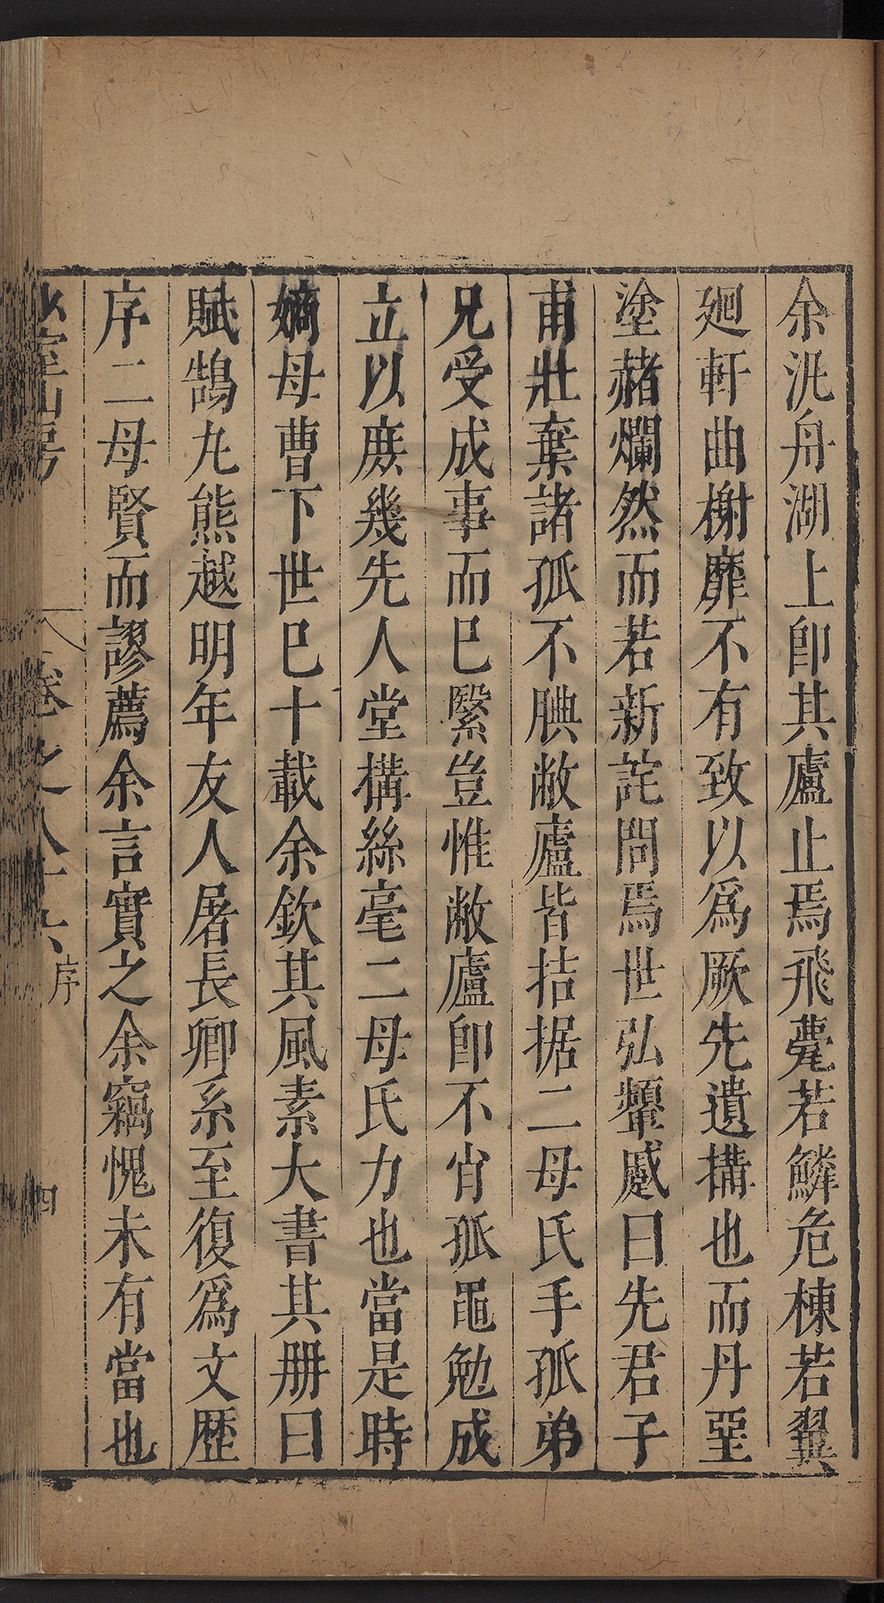 余汎舟湖上卽其廬止焉飛甍若鱗危棟若翼
廻軒曲榭靡不有致以爲厥先遺搆也而丹堊
塗赭爛然而若新詫問焉世弘顰蹙曰先君子
甫壯棄諸孤不腆敝廬皆拮据二母氏手孤弟
兄受成事而巳繄豈惟敝廬卽不肖孤黽勉成
立以庶幾先人堂搆絲毫二母氏力也當是時
嫡母曹下世巳十載余欽其風素大書其册曰
賦鵠丸熊越明年友人屠長卿系至復爲文歷
序二母賢而謬薦余言實之余竊愧未有當也
山房
卷之八十六 序
四